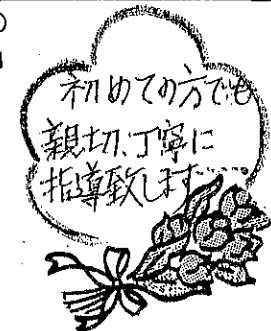 初めての方でも
親切、丁寧に
指導致します……